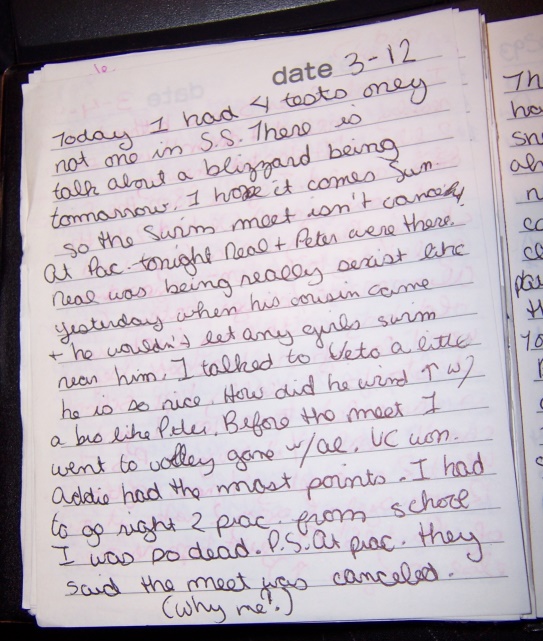 date 3-12
Today I had 4 tests oney
not one in S.S. There is
talk about a blizzard being
tommarrow. I hope it comes Sun
so the swim meet isn't
at Pac. tonight Neal + Peter were there.
Neal was being really sexist like
yesterday when his cousin came
+ he wouldn't let any girls swim
near him. I talked to Veto a little
he is so nice. How did he wind ↑ w/
a bro like Peter. Before the meet I
went to volley game w/ . VC won.
Addie had the most points. I had
to go right 2 prac. from school
I was so dead. P.S. At prac. they
said the meet was canceled.
(why me!)
Th